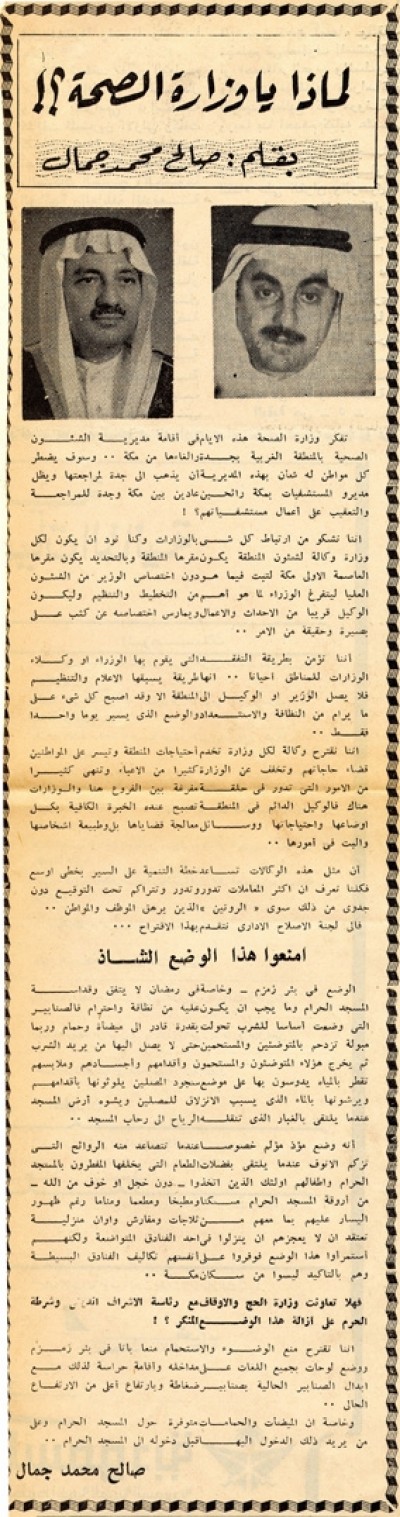 لماذا يا وزارة الصحة ؟!
بقلم : صالح محمد جمال
تفكر وزارة الصحة هذه الايام فى أقامة مديرية الشئون
الصحية بالمنطقة الغربية بجدة والغاءها من مكة ٠٠ وسوف يضطر
كل مواطن له شأن بهذه المديرية أن يذهب الى جدة لمراجعتها ويظل
مديرو المستشفيات بمكة رائحين عادين بين مكة وجدة للمراجعة
والتعقيب على أعمال مستشفياتهم ؟ !
اننا نشكو من ارتباط كل شىء بالوزارات وكنا نود ان يكون لكل
وزارة وكالة لشئون المنطقة يكون مقرها المنطقة وبالتحديد يكون مقرها
العاصمة الاولى مكة لتبت فيما هو دون اختصاص الوزير من الشئون
العليا ليتفرغ الوزراء لما هو أهم من التخطيط والتنظيم وليكون
الوكيل قريبا من الاحداث والاعمال ويمارس اختصاصه عن كثب على
بصيرة وحقيقة من الامر ٠٠
أننا نؤمن بطريقة التفقد التى يقوم بها الوزراء او وكلاء
الوزارات للمناطق احيانا ٠٠ انها طريقة يسبقها الاعلام والتنظيم
فلا يصل الوزير او الوكيل الى المنطقة الا وقد اصبح كل شىء على
ما يرام من النظافة والاستعداد والوضع الذى يسير يوما واحدا
فقط ٠٠
اننا نقترح وكالة لكل وزارة تخدم أحتياجات المنطقة وتيسر على المواطنين
قضاء حاجاتهم وتخفف عن الوزارة كثيرا من الاعباء وتنهى كثيرا
من الامور التى تدور فى حلقة مفرغة بين الفروع هنا والوزارات
هناك فالوكيل الدائم فى المنطقة تصبح عنده الخبرة الكافية بكل
اوضاعها واحتياجاتها ووسائل معالجة قضاياها بل وطبيعة اشخاصها
والبت فى أمورها ٠٠
أن مثل هذه الوكالات تساعد خطة التنمية على السير بخطى اوسع
فكلنا نعرف ان اكثر المعاملات تدور وتدور وتتراكم تحت التوقيع دون
جدوى من ذلك سوى « الروتين » الذين يرهق الموظف والمواطن ٠٠
فالى لجنة الاصلاح الادارى نتقدم بهذا الاقتراح ٠٠٠
امنعوا هذا الوضع الشاذ
الوضع فى بئر زمزم ـ وخاصة فى رمضان لا يتفق وقداسة
المسجد الحرام وما يجب ان يكون عليه من نظافة واحترام فالصنابير
التى وضعت أساسا للشرب تحولت بقدرة قادر الى ميضأة وحمام وربما
مبولة تزدحم بالمتوضئين والمستحمين حتى لا يصل اليها من يريد الشرب
ثم يخرج هؤلاء المتوضئون والمستحمون وأقدامهم وأجسادهم وملابسهم
تقطر بالمياه يدوسون بها على موضع سجود المصلين يلوثونها بأقدامهم
ويرشونها بالماء الذى يسبب الانزلاق للمصلين ويشوه أرض المسجد
عندما يلتقى بالغبار الذى تنقله الرياح الى رحاب المسجد ٠٠
أنه وضع مؤذ مؤلم خصوصا عندما تتصاعد منه الروائح التى
تزكم الانوف عندما يلتقى بفضلات الطعام التى يخلفها المفطرون بالمسجد
الحرام واطفالهم اولئك الذين اتخذوا ـ دون خجل او خوف من الله ـ
من أروقة المسجد الحرام مسكنا ومطبخا ومطعما ومناما رغم ظهور
اليسار عليهم بما معهم من ثلاجات ومفارش واوان منزلية
تعتقد ان لا يعجزهم ان ينزلوا فى احد الفنادق المتواضعة ولكنهم
أستمرأوا هذا الوضع فوفروا على أنفسهم تكاليف الفنادق البسيطة
وهم بالتأكيد ليسوا من سكان مكة ٠٠
فهلا تعاونت وزارة الحج والاوقاف مع رئاسة الاشراف الدينى وشرطة
الحرم على أزالة هذا الوضع المنكر ؟ !
اننا نقترح منع الوضوء والاستحمام منعا باتا فى بئر زمزم
ووضع لوحات بجميع اللغات على مداخله وأقامة حراسة لذلك مع
ابدال الصنابير الحالية بصنابير ضغاطة وبارتفاع أعلى من الارتفاع
الحالى ٠٠
وخاصة ان الميضئات والحمامات متوفرة حول المسجد الحرام وعلى
من يريد ذلك الدخول اليها قبل دخوله الى المسجد الحرام ٠٠
صالح محمد جمال